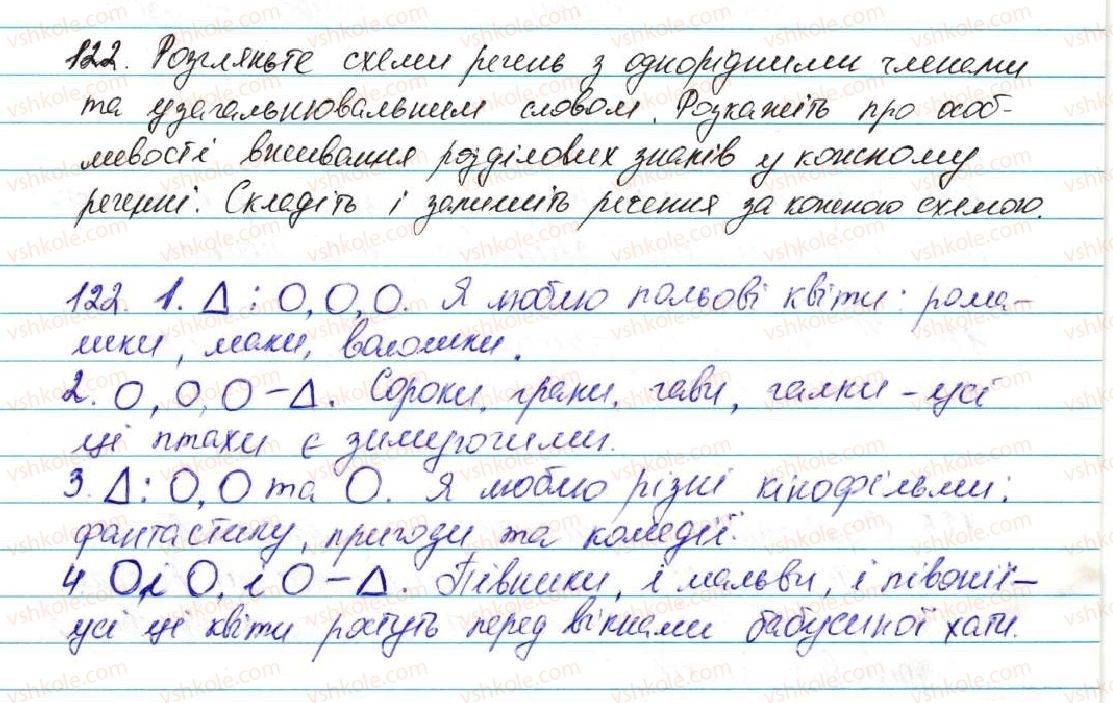 122. Розгляньте схеми речень з однорідними членами
та узагальнювальним словом. Розкажіть про особ-
ливості вживання розділових знаків у кожному
реченні. Складіть і запишіть речення за кожною схемою.
122. 1. Δ : О, О, О. Я люблю польові квіти: рома-
шки, маки, волошки.
2. О, О, О – Δ. Сороки, граки, гави, галки – усі
ці птахи є зимуючими.
3. Δ : О, О та О. Я люблю різні кінофільми:
фантастику, пригоди та комедії.
4. О, і О, і О – Δ. Півники, і мальви, і півонії –
усі ці квіти ростуть перед вікнами бабусиної хати.